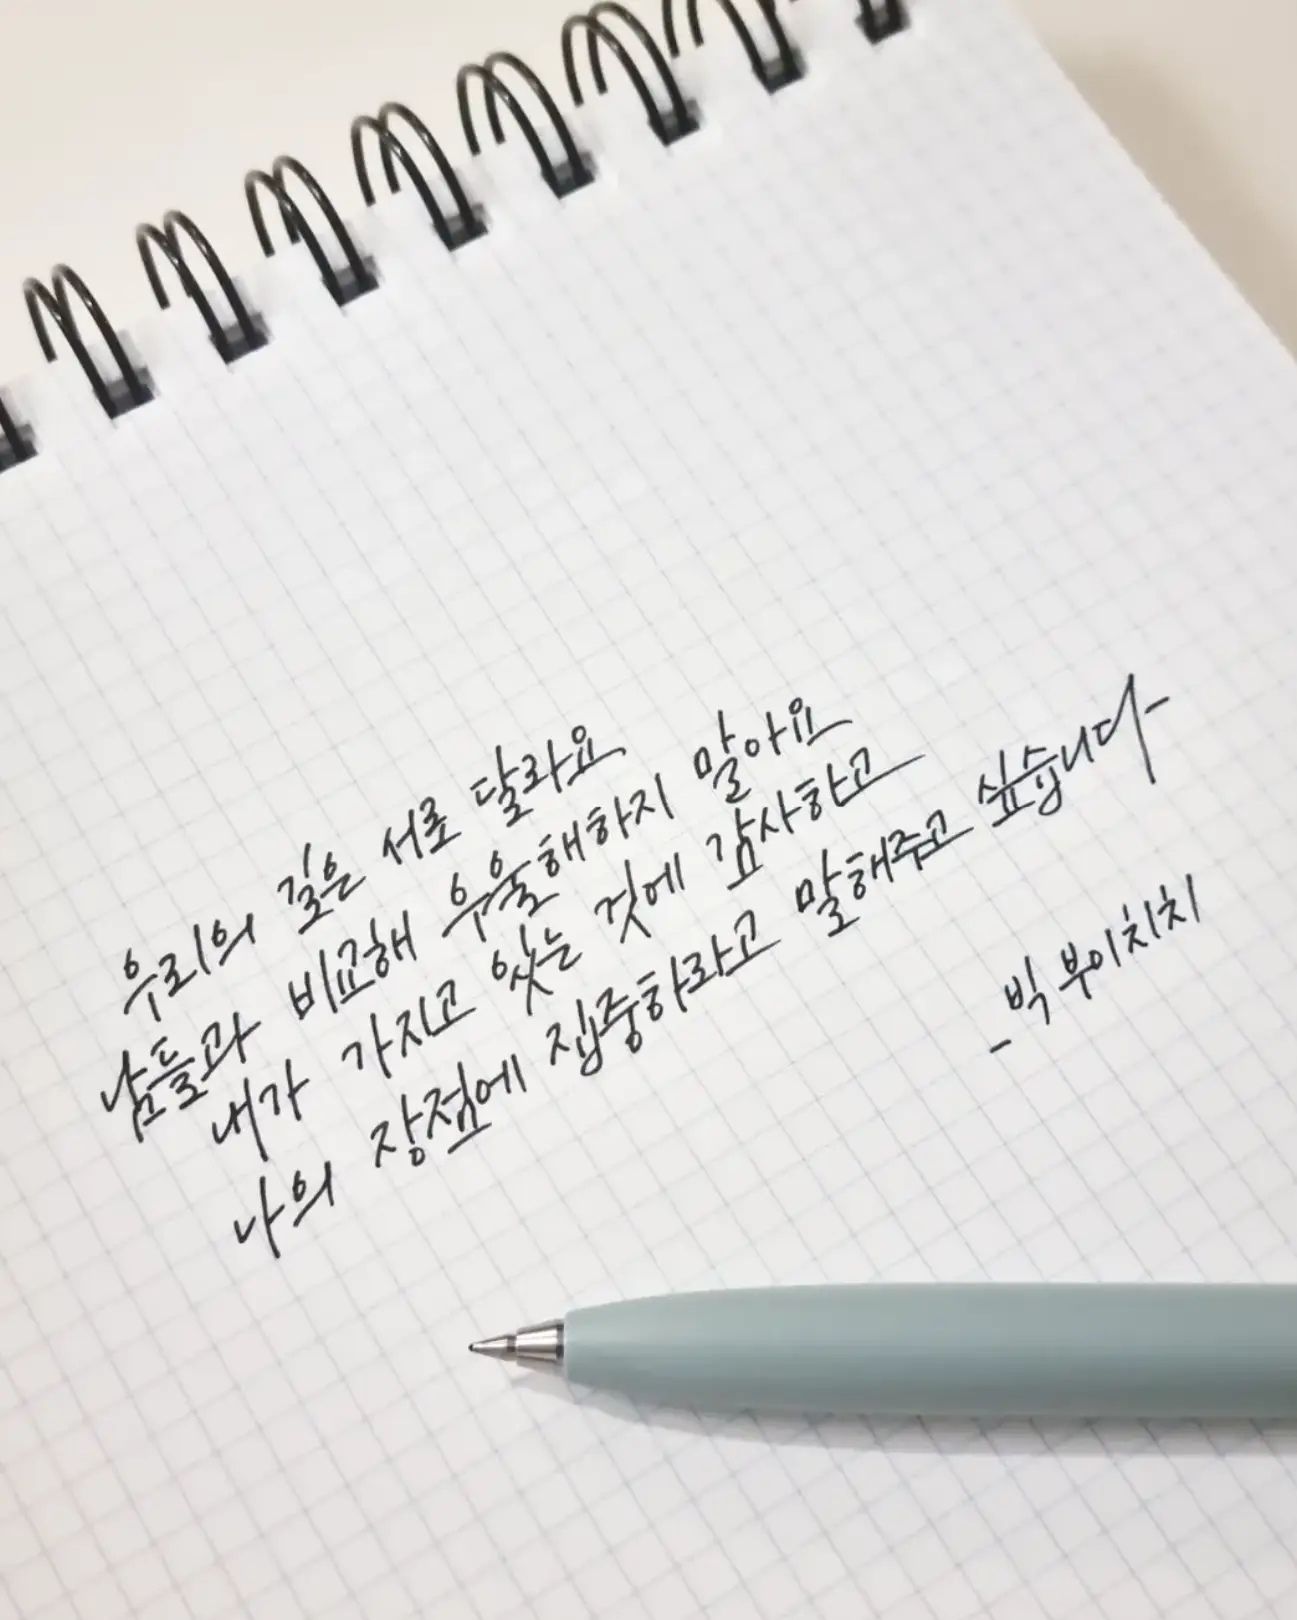 우리의 길은 서로 달라요
남들과 비교해 우울해하지 말아요
내가 가지고 있는 것에 감사하고
나의 장점에 집중하라고 말해주고 싶습니다-
- 빅 부이치치